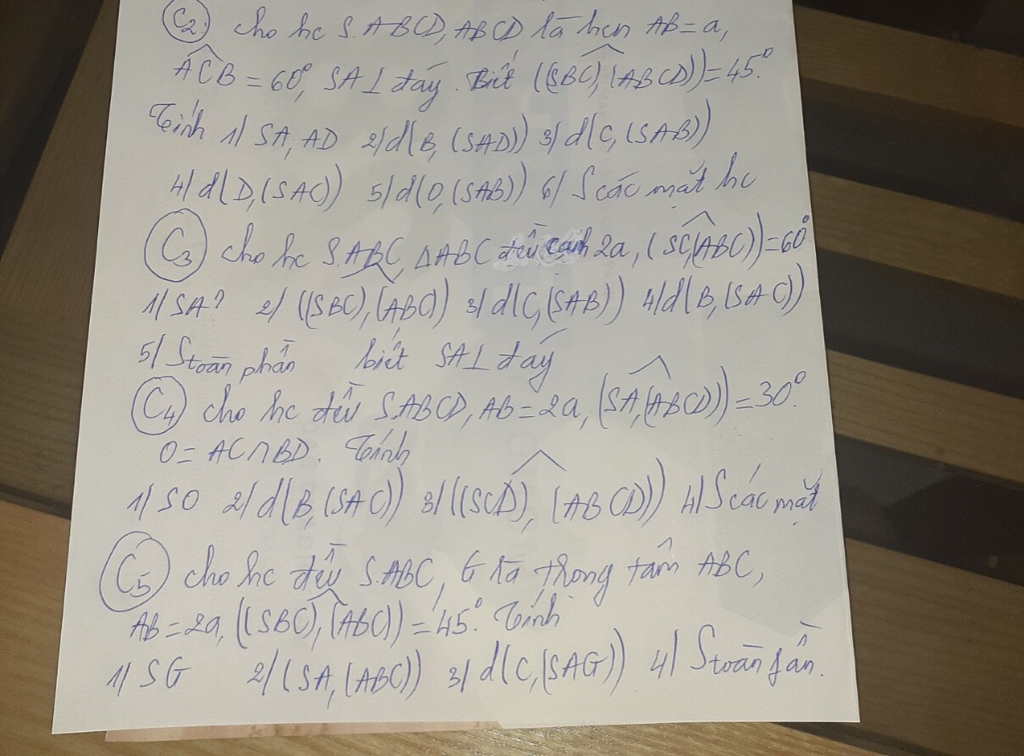 C2 cho hc S.ABCD, ABCD là hcn AB=a,
ACB = 60°, SA⊥ đáy. Biết ((SBC), (ABCD)) = 45°.
Tính 1/ SA, AD 2/ d(B, (SAD)) 3/ d(C, (SAB))
4/ d(D, (SAC)) 5/ d(O, (SAB)) 6/ S các mặt hc
C3 cho hc S.ABC, ΔABC đều cạnh 2a, (SC,(ABC)) = 60°
1/ SA? 2/ ((SBC), (ABC)) 3/ d(C, (SAB)) 4/ d(B, (SAC))
5/ Stoàn phần biết SA⊥ đáy
C4 cho hc đều S.ABCD, AB = 2a, (SA, (ABCD)) = 30°.
O = AC∩BD. Tính
1/ SO 2/ d(B, (SAC)) 3/ ((SCD), (ABCD)) 4/ S các mặt
C5 cho hc đều S.ABC, G là trọng tâm ABC,
AB = 2a, ((SBC), (ABC)) = 45°. Tính
1/ SG 2/ (SA, (ABC)) 3/ d(C, (SAG)) 4/ Stoàn fần.